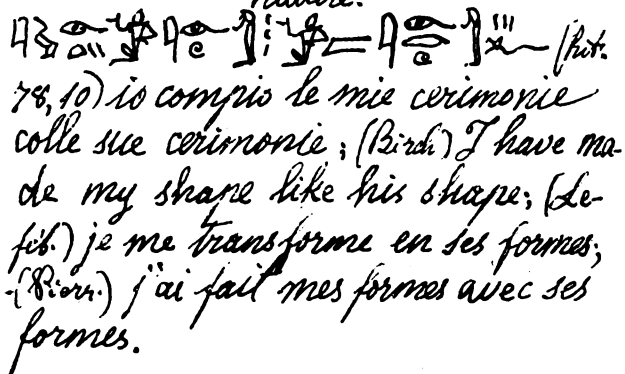 78, 10) io compio le mie cerimonie
colle sue cerimonie; (Birch) I have ma-
de my shape like his shape; (Le-
féb.) je me transforme en ses formes;
(Pierr.) j'ai fait mes formes avec ses
formes.